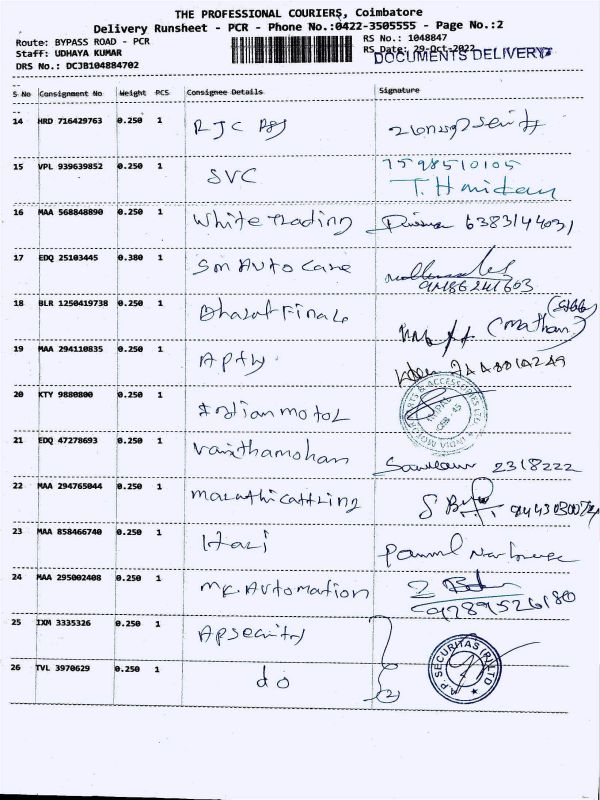 THE PROFESSIONAL COURIERS, Coimbatore
Delivery Runsheet - PCR - Phone No.:0422-3505555 - Page No.:2
Route: BYPASS ROAD - PCR RS No.: 1048847
Staff: UDHAYA KUMAR RS Date: 29-Oct-2022
DOCUMENTS DELIVERY
DRS No.: DCJB104884702
S No Consignment No Weight PCS Consignee Details Signature
14 HRD 716429763 0.250 1 RJC
15 VPL 939639852 0.250 1 SVC 7598510105
16 MAA 568848890 0.250 1 White Trading 6383144031
17 EDQ 25103445 0.380 1 Sm Auto Care
18 BLR 1250419738 0.250 1 Bharat (Mathan)
19 MAA 294110835 0.250 1
20 KTY 9880800 0.250 1 Indian motor
21 EDQ 47278693 0.250 1 Vanithamohan 2318222
22 MAA 294765044 0.250 1
23 MAA 858466740 0.250 1 Hari
24 MAA 295002408 0.250 1 MK Automation 9289526180
25 IXM 3335326 0.250 1 Apsecurity
A.P. SECURITAS (P) LTD
26 TVL 3970629 0.250 1 do